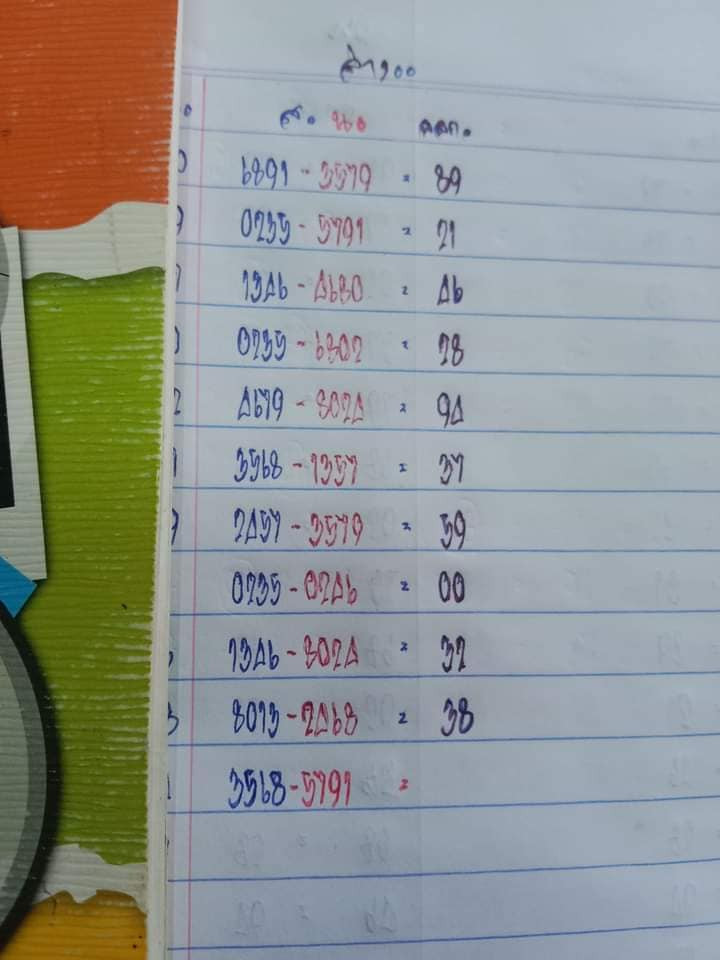 6891-3579 = 89
0235-5791 = 21
1346-4680 = 46
0235-6802 = 28
4679-8024 = 94
3568-1357 = 37
2457-3579 = 59
0235-0246 = 00
1346-8024 = 32
8013-2468 = 38
3568-5791 =